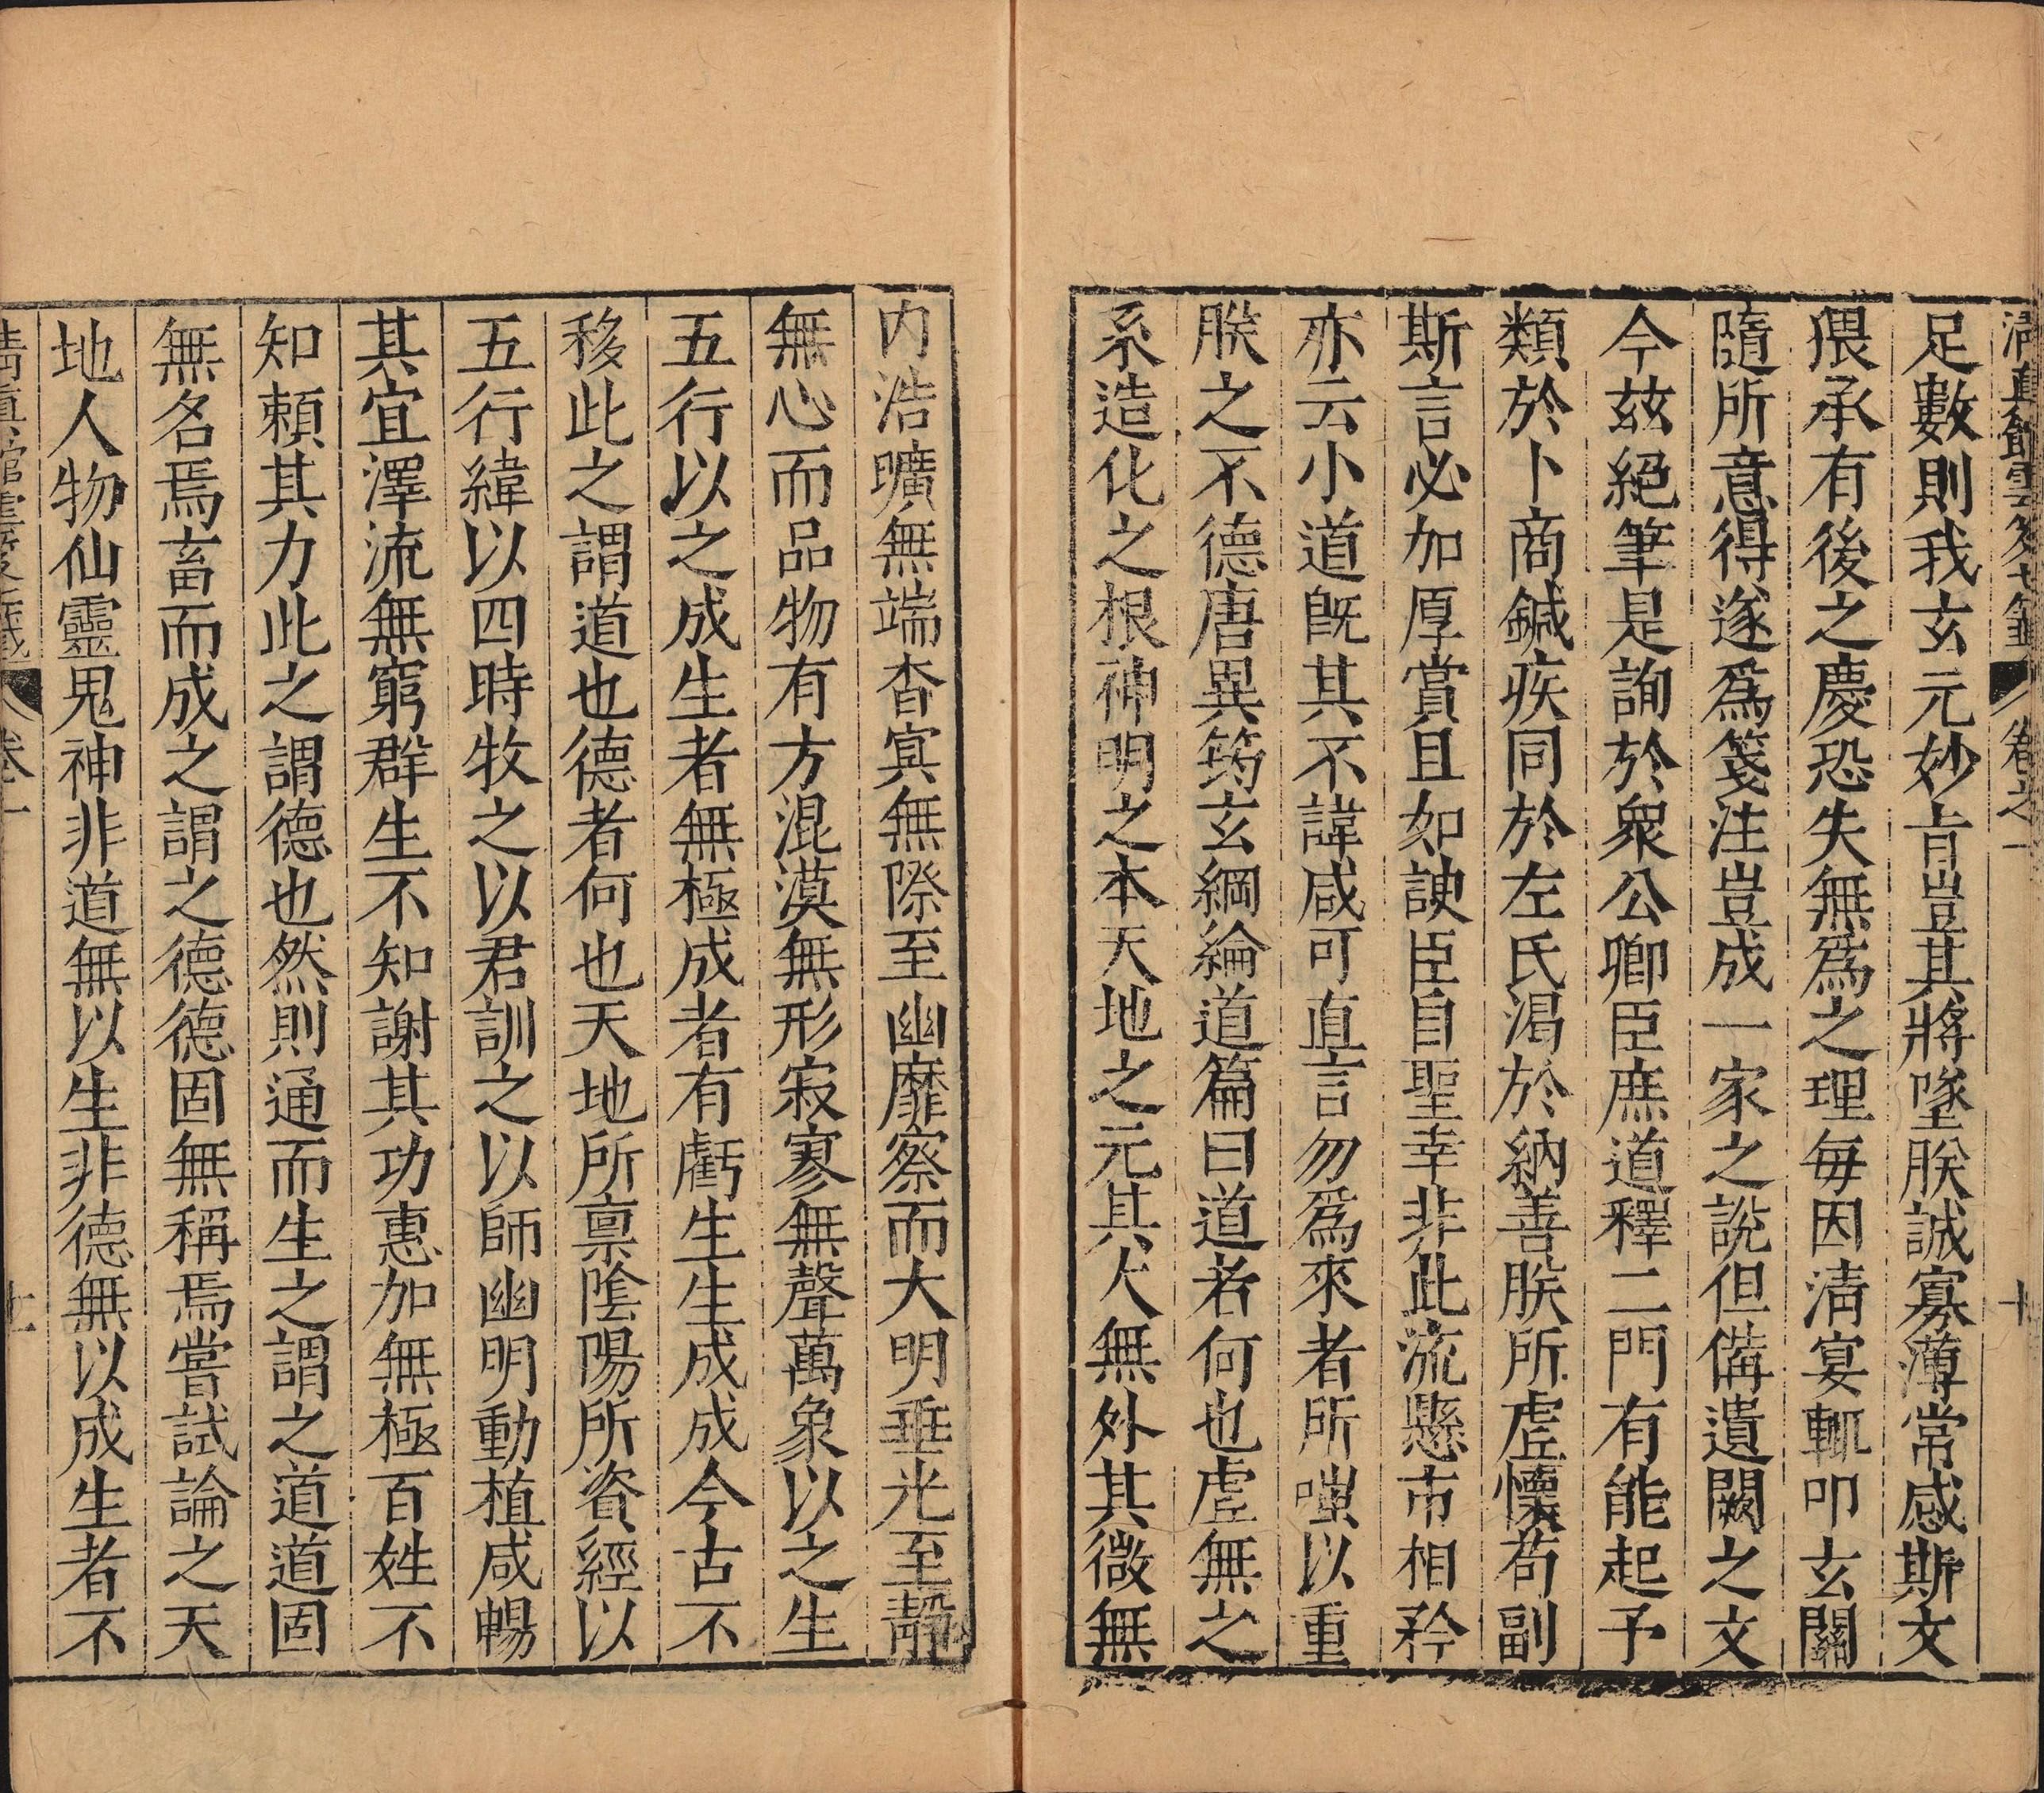 清真館雲笈七籤 卷之一 十
足數則我玄元妙旨豈其將墜朕誠寡薄常感斯文
猥承有後之慶恐失無為之理每因清宴輒叩玄關
隨所意得遂為箋注豈成一家之說但備遺闕之文
今茲絕筆是詢於眾公卿臣庶道釋二門有能起予
類於卜商鍼疾同於左氏渴於納善朕所虛懷苟副
斯言必加厚賞且如諛臣自聖幸非此流懸市相矜
亦云小道既其不諱咸可直言勿為來者所嗤以重
朕之不德唐異筠玄綱論道篇曰道者何也虛無之
系造化之根神明之本天地之元其大無外其微無
內浩曠無端杳冥無際至幽靡察而大明垂光至靜
無心而品物有方混漠無形寂寥無聲萬象以之生
五行以之成生者無極成者有虧生生成成今古不
移此之謂道也德者何也天地所稟陰陽所資經以
五行緯以四時牧之以君訓之以師幽明動植咸暢
其宜澤流無窮群生不知謝其功惠加無極百姓不
知賴其力此之謂德也然則通而生之謂之道道固
無名焉畜而成之謂之德德固無稱焉嘗試論之天
地人物仙靈鬼神非道無以生非德無以成生者不
清真館雲笈七籤 卷一 十一